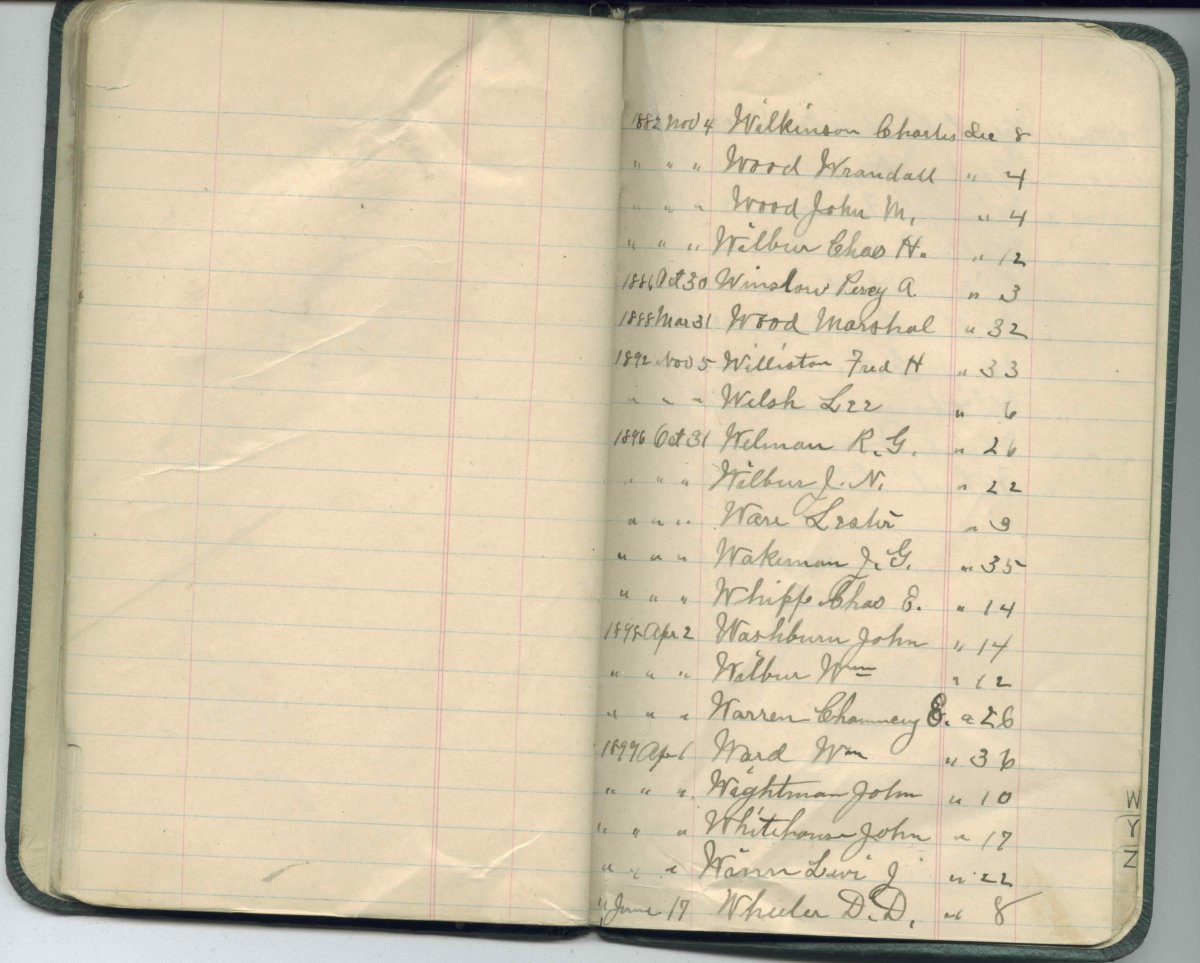 1882 Nov 4 Wilkinson Charles Sec 8
" " " Wood Wrandall " 4
" " " Wood John M. " 4
" " " Wilbur Chas H. " 12
1886 Oct 30 Winslow Percy A " 3
1888 Mar 31 Wood Marshal " 32
1892 Nov 5 Williston Fred H " 33
" " " Welsh Lee " 6
1896 Oct 31 Welman R. G. " 26
" " " Wilbur J. N. " 22
" " " Ware Lester " 3
" " " Wakeman J. G. " 35
" " " Whipp Chas E. " 14
1898 Apr 2 Washburn John " 14
" " " Wilbur Wm " 12
" " " Warren Chauncey E. " 26
1899 Apr 1 Ward Wm " 36
" " " Wightman John " 10
" " " Whitehouse John " 17
" " " Levi J " 22
" June 17 Wheeler D. D. " 8
W
Y
Z